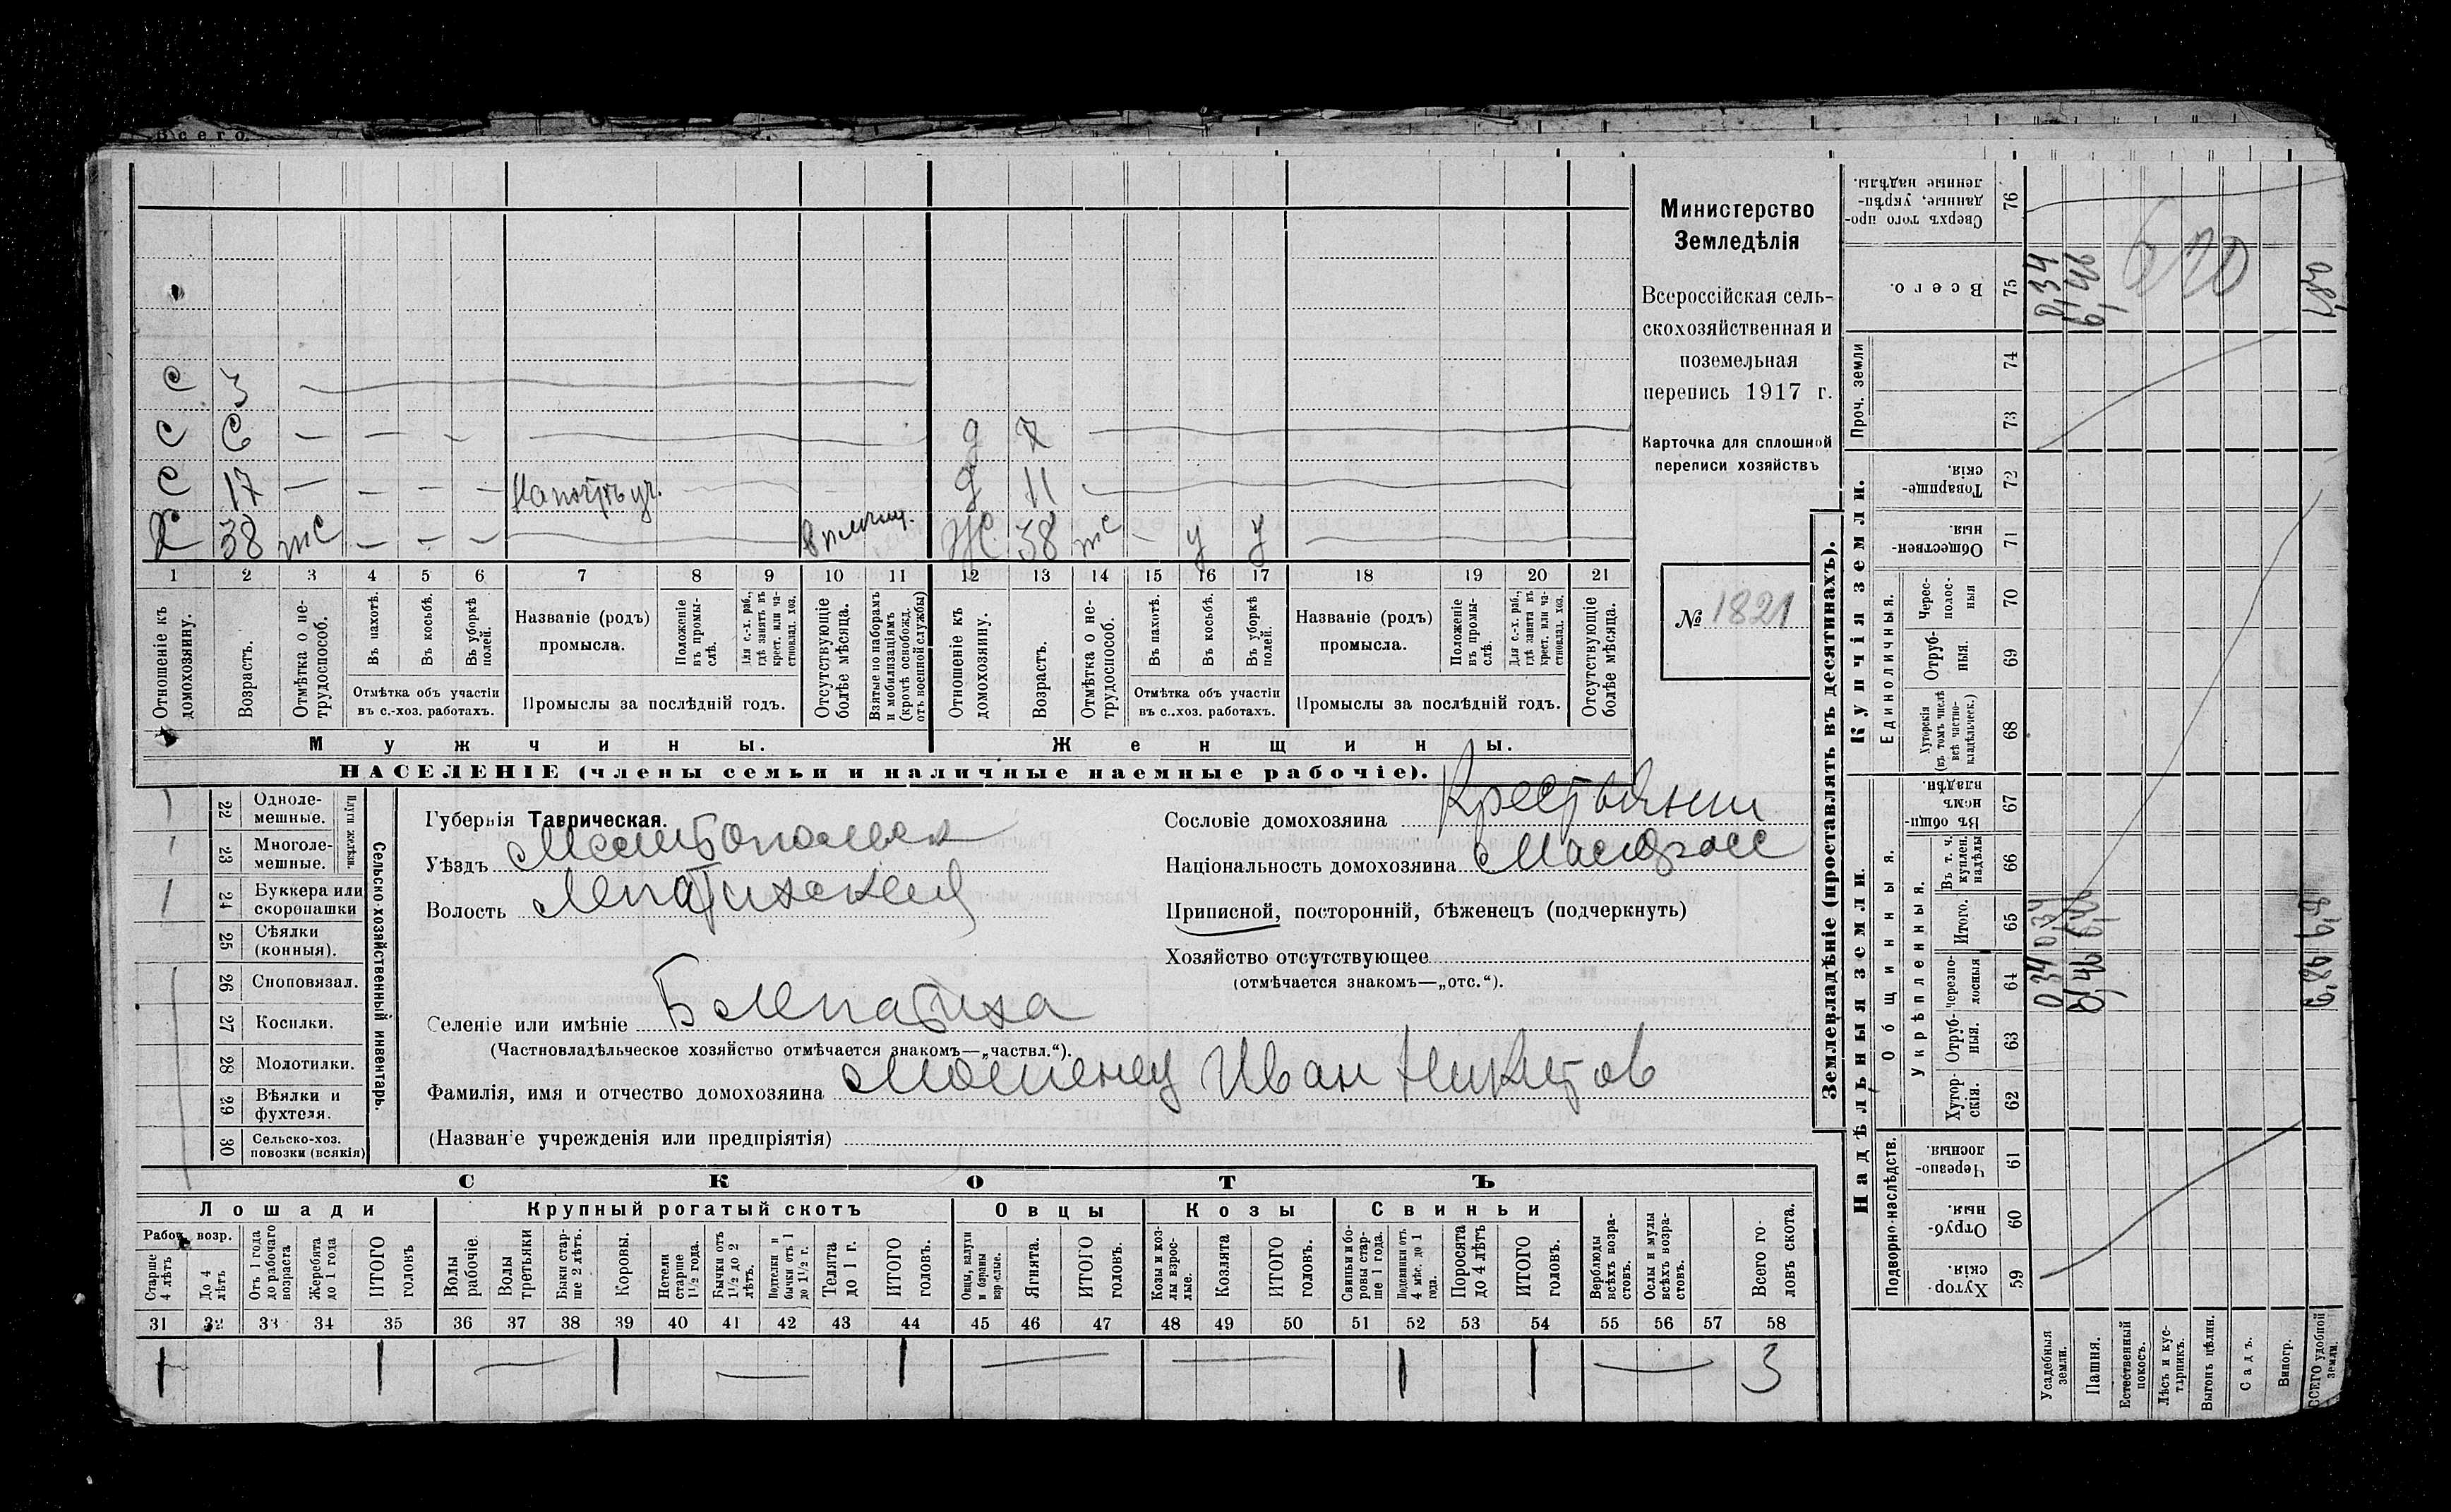 Всего
Министерство
Земледѣлія
Всероссійская сель-
скохозяйственная и
поземельная
перепись 1917 г.
Карточка для сплошной
переписи хозяйствъ
№ 1821
С 3
С 6 — — — д 7
С 17 — — — — д 11
Х 38 — — — Ж 38 — у у
1 2 3 4 5 6 7 8 9 10 11 12 13 14 15 16 17 18 19 20 21
Отношеніе къ домохозяину.
Возрастъ.
Отмѣтка о не-трудоспособ.
Въ пахотѣ.
Въ косьбѣ.
Въ уборкѣ полей.
Отмѣтка объ участіи
въ с.-хоз. работахъ.
Названіе (родъ)
промысла.
Положеніе въ промы-слѣ.
Для с.-х. раб., гдѣ занятъ въ крест. или ча-стновлад. хоз.
Промыслы за послѣдній годъ.
Отсутствующіе болѣе мѣсяца.
Взятые по наборамъ и мобилизаціямъ (кромѣ освобожд. отъ военной службы)
Отношеніе къ домохозяину.
Возрастъ.
Отмѣтка о не-трудоспособ.
Въ пахотѣ.
Въ косьбѣ.
Въ уборкѣ полей.
Отмѣтка объ участіи
въ с.-хоз. работахъ.
Названіе (родъ)
промысла.
Положеніе въ промы-слѣ.
Для с.-х. раб., гдѣ занята въ крест. или ча-стновлад. хоз.
Промыслы за послѣдній годъ.
Отсутствующіе болѣе мѣсяца.
Мужчины. Женщины.
НАСЕЛЕНІЕ (члены семьи и наличные наемные рабочіе).
22 Одноле-мешные.
23 Многоле-мешные.
Плуги желѣзн.
24 Буккера или скоропашки
25 Сѣялки (конныя).
26 Сноповязал.
27 Косилки.
28 Молотилки.
29 Вѣялки и фухтеля.
30 Сельско-хоз. повозки (всякія)
Сельско-хозяйственный инвентарь.
Губернія Таврическая.
Уѣздъ Мелитопольск
Волость Лепатихской
Селеніе или имѣніе Б Лепатиха
(Частновладѣльческое хозяйство отмѣчается знакомъ—„частвл.“).
Фамилія, имя и отчество домохозяина Мошенец Иван Никитов
(Названіе учрежденія или предпріятія)
Сословіе домохозяина Крестьянин
Національность домохозяина Малоросс
Приписной, посторонній, бѣженецъ (подчеркнуть)
Хозяйство отсутствующее
(отмѣчается знакомъ—„отс.“).
СКОТЪ
Лошади Крупный рогатый скотъ Овцы Козы Свиньи
Рабоч. возр.
Старше 4 лѣтъ
До 4 лѣтъ
Отъ 1 года до рабочаго возраста
Жеребята до 1 года
ИТОГО головъ
Волы рабочіе.
Волы третьяки
Быки стар-ше 2 лѣтъ.
Коровы.
Нетели старше 1½ года.
Бычки отъ 1½ до 2 лѣтъ.
Подтелки и бычки отъ 1 до 1½ г.
Телята до 1 г.
ИТОГО головъ.
Овцы, валухи и бараны взрослые.
Ягнята.
ИТОГО головъ.
Козы и коз-лы взрос-лые.
Козлята
ИТОГО головъ.
Свиньи и бо-ровы стар-ше 1 года.
Подсвинки отъ 4 мѣс. до 1 года.
Поросята до 4 лѣтъ
ИТОГО головъ.
Верблюды всѣхъ возра-стовъ.
Ослы и мулы всѣхъ возра-стовъ.
Всего го-ловъ скота.
31 32 33 34 35 36 37 38 39 40 41 42 43 44 45 46 47 48 49 50 51 52 53 54 55 56 57 58
1 1 1 1 1 1 3
Землевладѣніе (проставлять въ десятинахъ).
Купчія земли.
Надѣльныя земли.
Сверхъ того про-данные, укрѣп-ленные надѣлы. 76
Всего. 75 0,34 6,46 6,80
Проч. земли 74 73
Товарище-скія. 72
Обществен-ныя. 71
Единоличныя.
Черес-полос-ныя 70
Отруб-ныя. 69
Хуторскія (въ томъ числѣ всѣ частно-владѣльческ.) 68
Общинныя.
Въ общин-номъ владѣн. 67
Укрѣпленныя.
Въ т. ч. куплен. надѣлы 66
Итого. 65 0,34
Черезпо-лосныя 64 0,34 6,46 6,80
Отруб-ныя. 63
Хутор-скія. 62
Подворно-наслѣдств.
Черезпо-лосныя 61
Отруб-ныя. 60
Хутор-скія. 59
Усадебныя земли.
Пашня.
Естественный покосъ.
Лѣсъ и кус-тарникъ.
Выгонъ цѣлин.
Садъ.
Виногр.
ВСЕГО удобной земли.